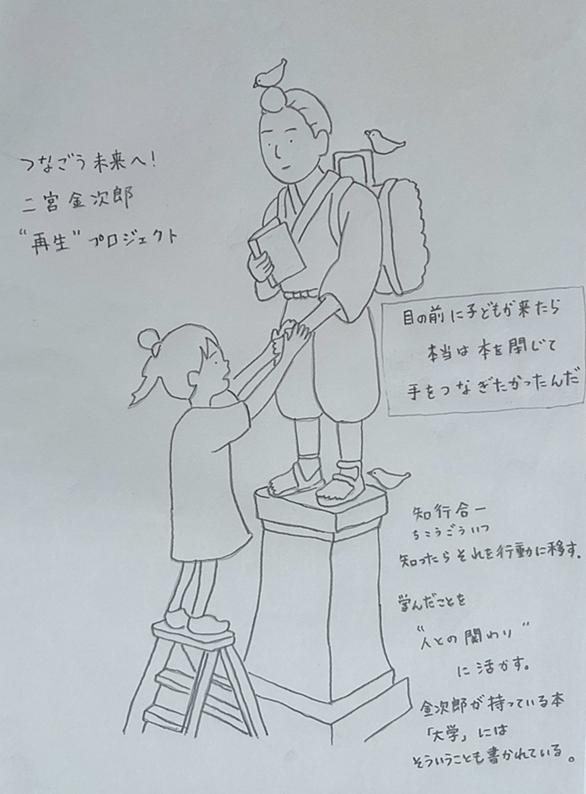 つなごう未来へ!
二宮金次郎
"再生"プロジェクト
目の前に子どもが来たら
本当は本を閉じて
手をつなぎたかったんだ
知行合一
ちこうごういつ
知ったらそれを行動に移す.
学んだことを
"人との関わり"
に活かす。
金次郎が持っている本
「大学」には
そういうことも書かれている。